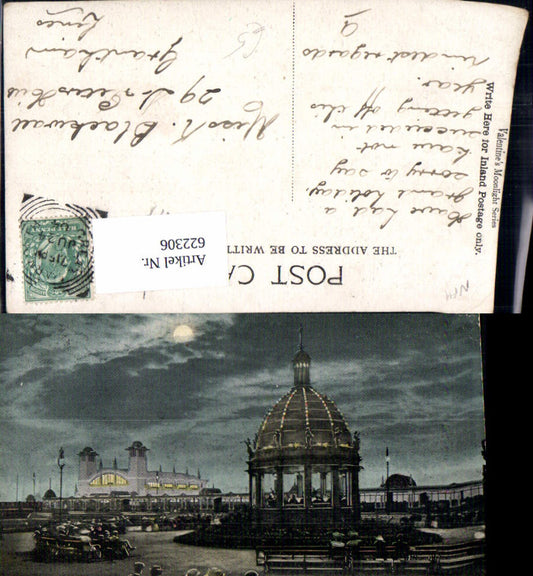 Valentine's Moonlight Series
Write Here for Inland Postage only.
POST CA
THE ADDRESS TO BE WRITT
Artikel Nr.
622306
Have had a
grand holiday,
sorry to say
have not
succeeded in
getting off this
year.
Kindest regards
G
Miss K. Blackwall
29
Grantham
Lincs